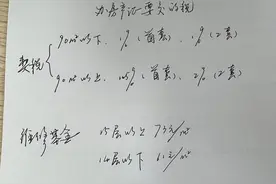 办房产证要交的税
契税
90m²以下，1%（首套），1%（2套）
90m²以上，1.5%（首套），2%（2套）
维修基金
15层以上 75元/m²
14层以下 61元/m²